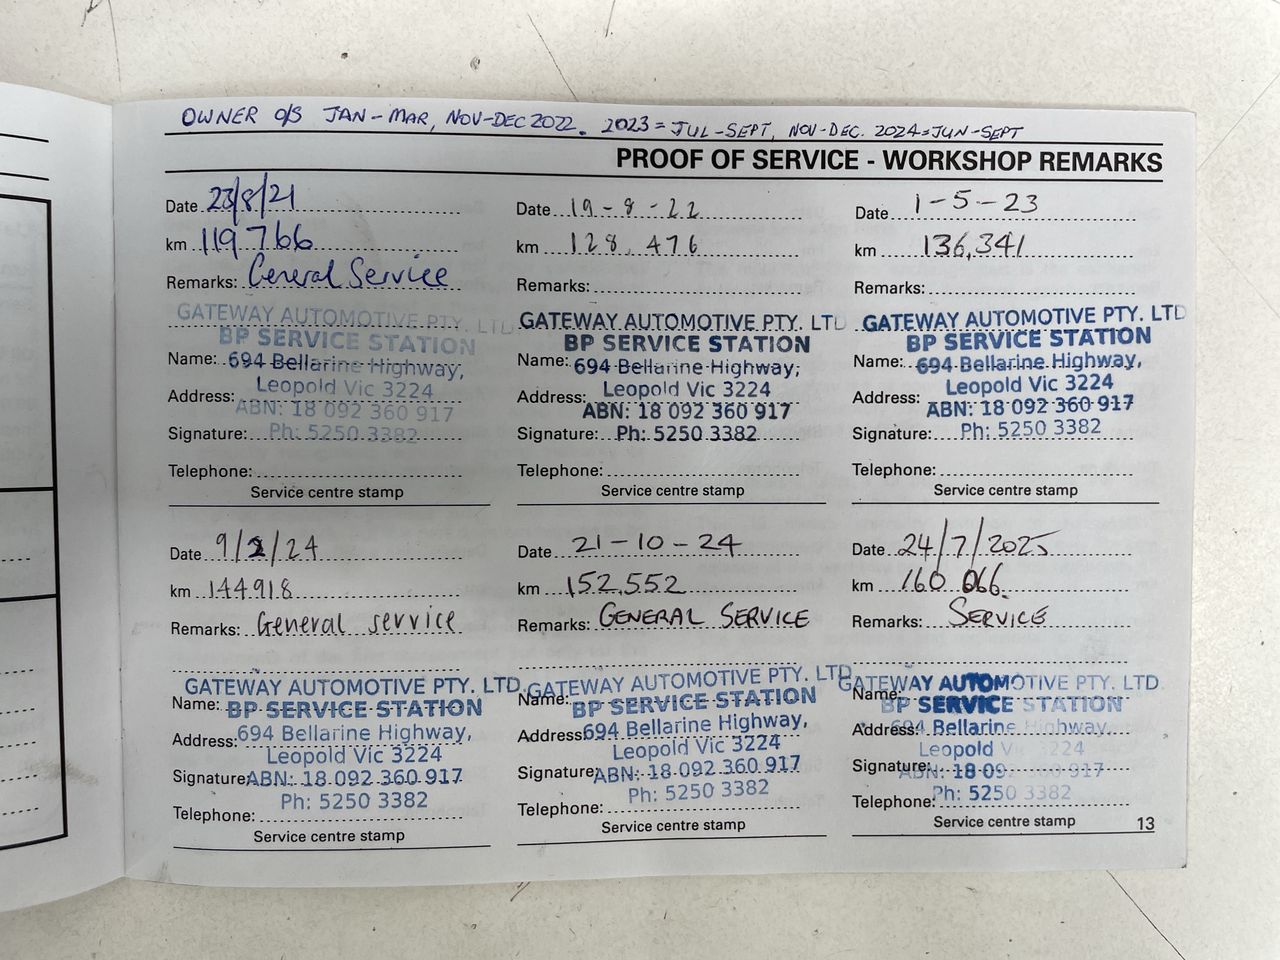 OWNER O/S JAN-MAR, NOV-DEC 2022. 2023=JUL-SEPT, NOV-DEC. 2024=JUN-SEPT
PROOF OF SERVICE - WORKSHOP REMARKS
Date 23/8/21
km 119 766
Remarks: General Service
GATEWAY AUTOMOTIVE PTY. LTD
BP SERVICE STATION
Name: 694 Bellarine Highway,
Leopold Vic 3224
Address:
ABN: 18 092 360 917
Signature: Ph: 5250 3382
Telephone:
Service centre stamp
Date 19-8-22
km 128,476
Remarks:
GATEWAY AUTOMOTIVE PTY. LTD
BP SERVICE STATION
Name: 694 Bellarine Highway,
Leopold Vic 3224
Address:
ABN: 18 092 360 917
Signature: Ph: 5250 3382
Telephone:
Service centre stamp
Date 1-5-23
km 136,341
Remarks:
GATEWAY AUTOMOTIVE PTY. LTD
BP SERVICE STATION
Name: 694 Bellarine Highway,
Leopold Vic 3224
Address:
ABN: 18 092 360 917
Signature: Ph: 5250 3382
Telephone:
Service centre stamp
Date 9/2/24
km 144918
Remarks: General service
GATEWAY AUTOMOTIVE PTY. LTD
Name: BP SERVICE STATION
Address: 694 Bellarine Highway,
Leopold Vic 3224
Signature: ABN: 18 092 360 917
Ph: 5250 3382
Telephone:
Service centre stamp
Date 21-10-24
km 152,552
Remarks: GENERAL SERVICE
GATEWAY AUTOMOTIVE PTY. LTD
Name: BP SERVICE STATION
Address: 694 Bellarine Highway,
Leopold Vic 3224
Signature: ABN: 18 092 360 917
Ph: 5250 3382
Telephone:
Service centre stamp
Date 24/7/2025
km 160 066.
Remarks: SERVICE
GATEWAY AUTOMOTIVE PTY. LTD
Name: BP SERVICE STATION
Address: 694 Bellarine Highway,
Leopold Vic 3224
Signature: ABN: 18 092 360 917
Telephone: Ph: 5250 3382
Service centre stamp
13